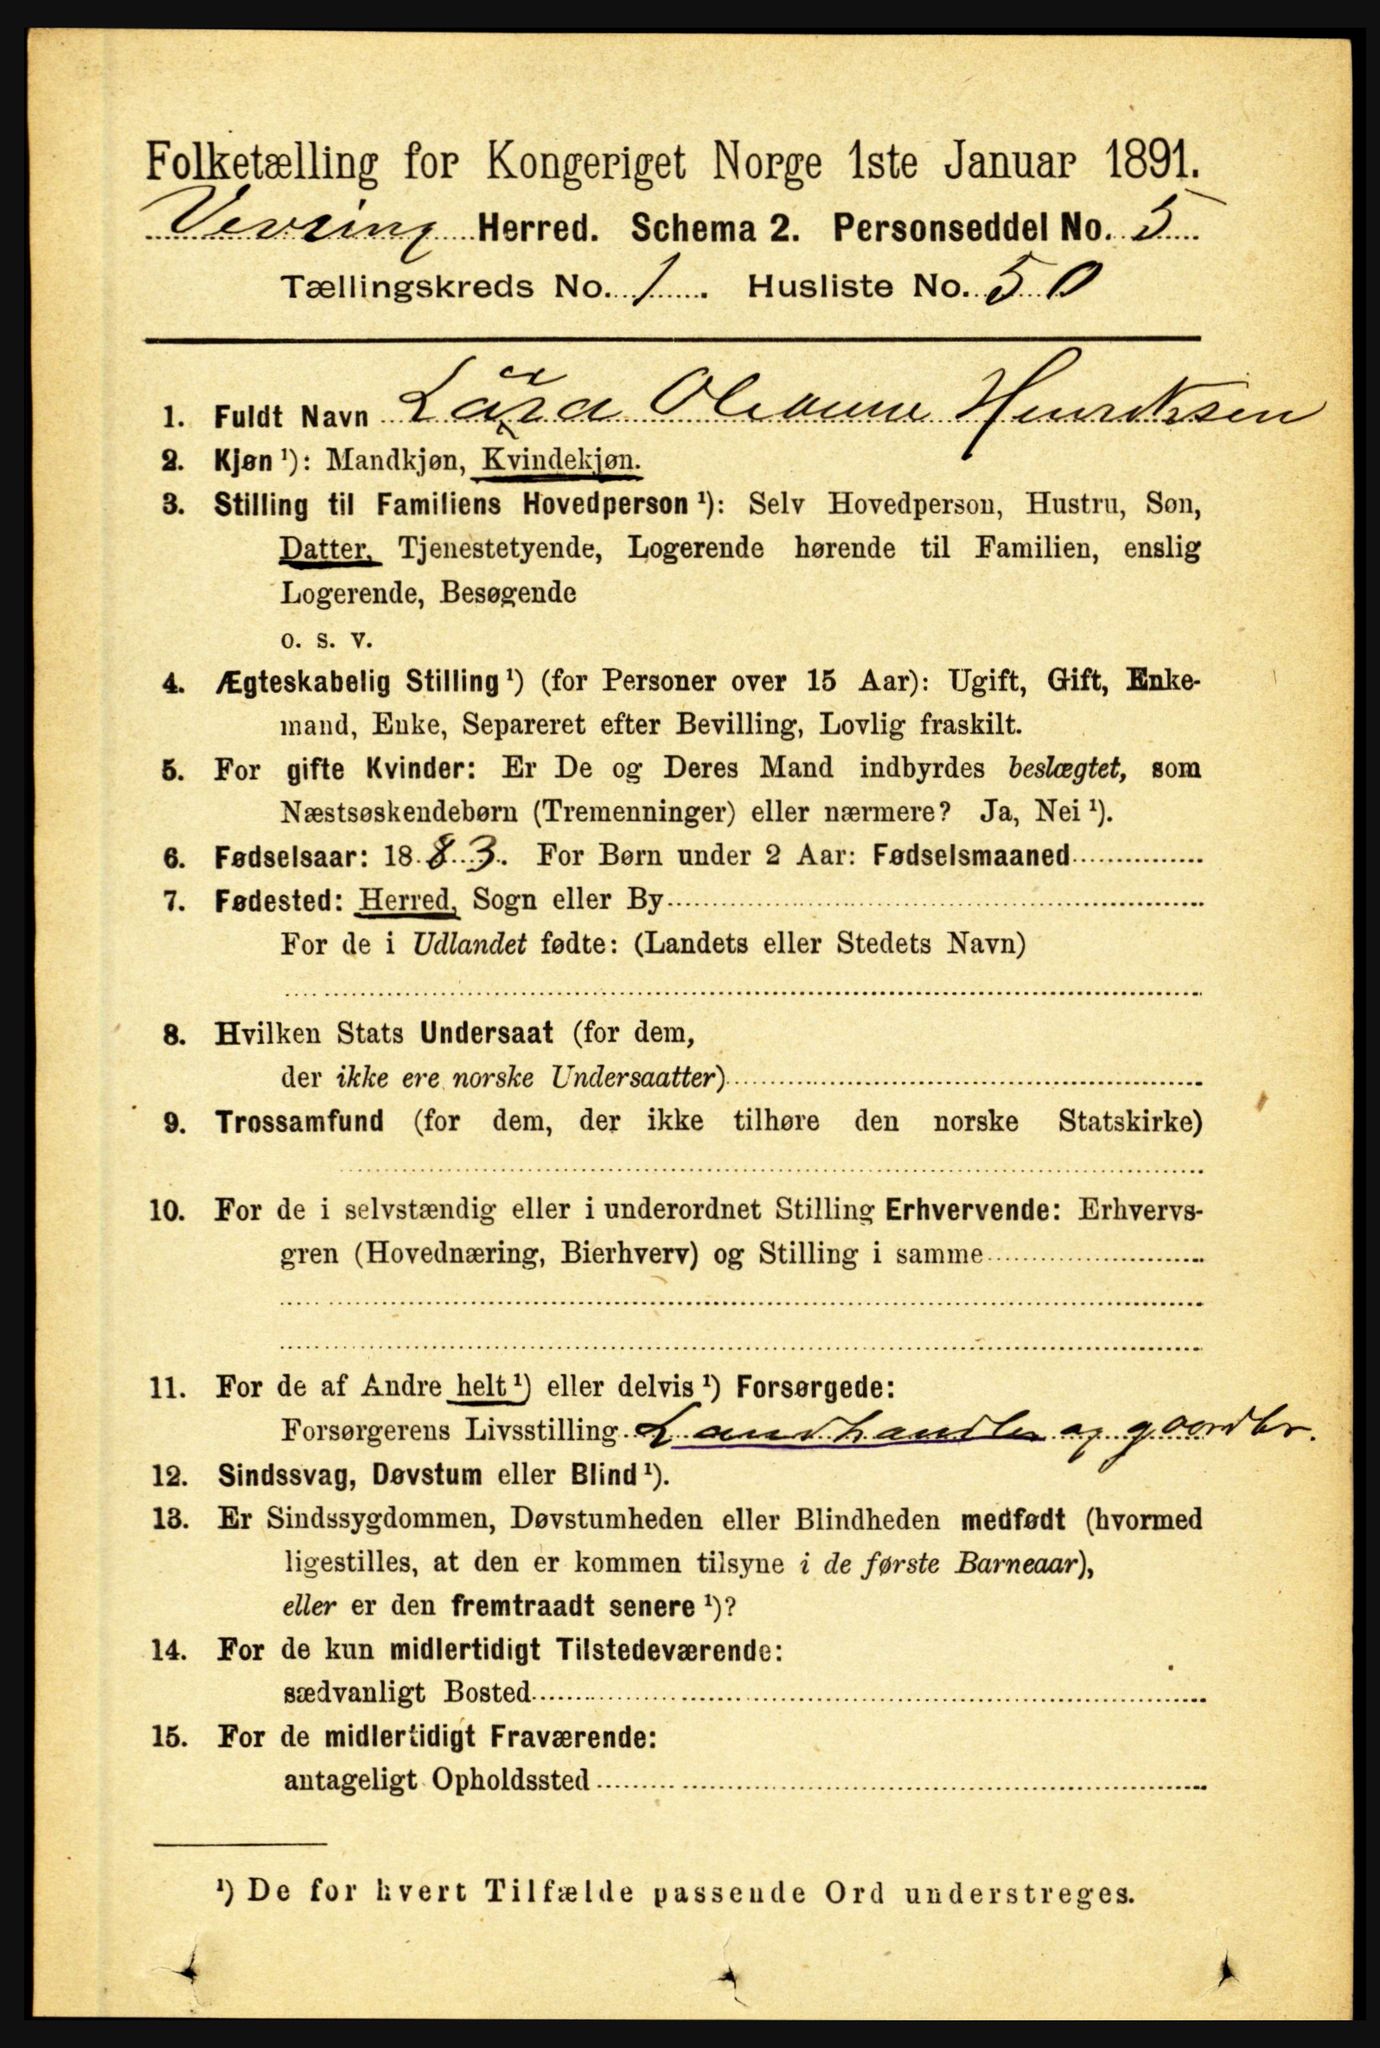 Folketælling for Kongeriget Norge 1ste Januar 1891.
Vevring Herred. Schema 2. Personseddel No. 5
Tællingskreds No. 1. Husliste No. 50
1. Fuldt Navn Lära Oleanne Henriksen
2. Kjøn ¹): Mandkjøn, Kvindekjøn.
3. Stilling til Familiens Hovedperson ¹): Selv Hovedperson, Hustru, Søn,
Datter, Tjenestetyende, Logerende hørende til Familien, enslig
Logerende, Besøgende
o. s. v.
4. Ægteskabelig Stilling ¹) (for Personer over 15 Aar): Ugift, Gift, Enke-
mand, Enke, Separeret efter Bevilling, Lovlig fraskilt.
5. For gifte Kvinder: Er De og Deres Mand indbyrdes beslægtet, som
Næstsøskendebørn (Tremenninger) eller nærmere? Ja, Nei ¹).
6. Fødselsaar: 1883. For Børn under 2 Aar: Fødselsmaaned
7. Fødested: Herred, Sogn eller By
For de i Udlandet fødte: (Landets eller Stedets Navn)
8. Hvilken Stats Undersaat (for dem,
der ikke ere norske Undersaatter)
9. Trossamfund (for dem, der ikke tilhøre den norske Statskirke)
10. For de i selvstændig eller i underordnet Stilling Erhvervende: Erhvervs-
gren (Hovednæring, Bierhverv) og Stilling i samme
11. For de af Andre helt ¹) eller delvis ¹) Forsørgede:
Forsørgerens Livsstilling Landhandler og gaardbr.
12. Sindssvag, Døvstum eller Blind ¹).
13. Er Sindssygdommen, Døvstumheden eller Blindheden medfødt (hvormed
ligestilles, at den er kommen tilsyne i de første Barneaar),
eller er den fremtraadt senere ¹)?
14. For de kun midlertidigt Tilstedeværende:
sædvanligt Bosted
15. For de midlertidigt Fraværende:
antageligt Opholdssted
¹) De for hvert Tilfælde passende Ord understreges.